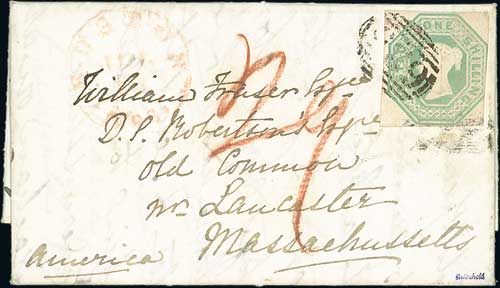 ONE SHILLING
William Fraser Esqre
D. S. Robertson's Esqre
Old Common
nr Lancaster
Massachussetts
America